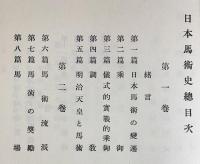 日本馬術史總目次
第一卷
緒言
第一篇 日本馬術の變遷
第二篇 乘御
第三篇 儀式的實戰的乘御
第四篇 調教
第五篇 明治天皇と馬術
第二卷
第六篇 馬術流派
第七篇 馬術の獎勵
第八篇 馬場